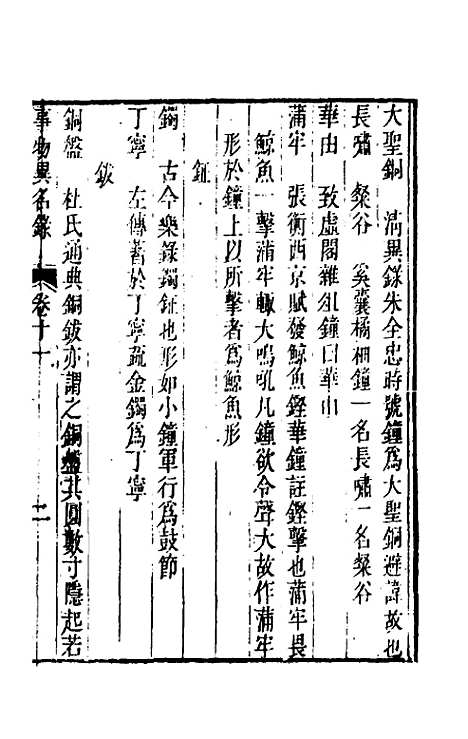 大聖銅　清異錄朱全忠時號鐘爲大聖銅避諱故也
長嘯　粲谷　奚囊橘柚鐘一名長嘯一名粲谷
華由　致虛閣雜俎鐘曰華由
蒲牢　張衡西京賦發鯨魚鏗華鐘註鏗擊也蒲牢畏
鯨魚一擊蒲牢輒大鳴吼凡鐘欲令聲大故作蒲牢
形於鐘上以所擊者爲鯨魚形
鉦
鐲　古今樂錄鐲鉦也形如小鐘軍行爲鼓節
丁寧　左傳著於丁寧疏金鐲爲丁寧
鈸
銅盤　杜氏通典銅鈸亦謂之銅盤其圓數寸隱起若
事物異名錄　卷十一　二